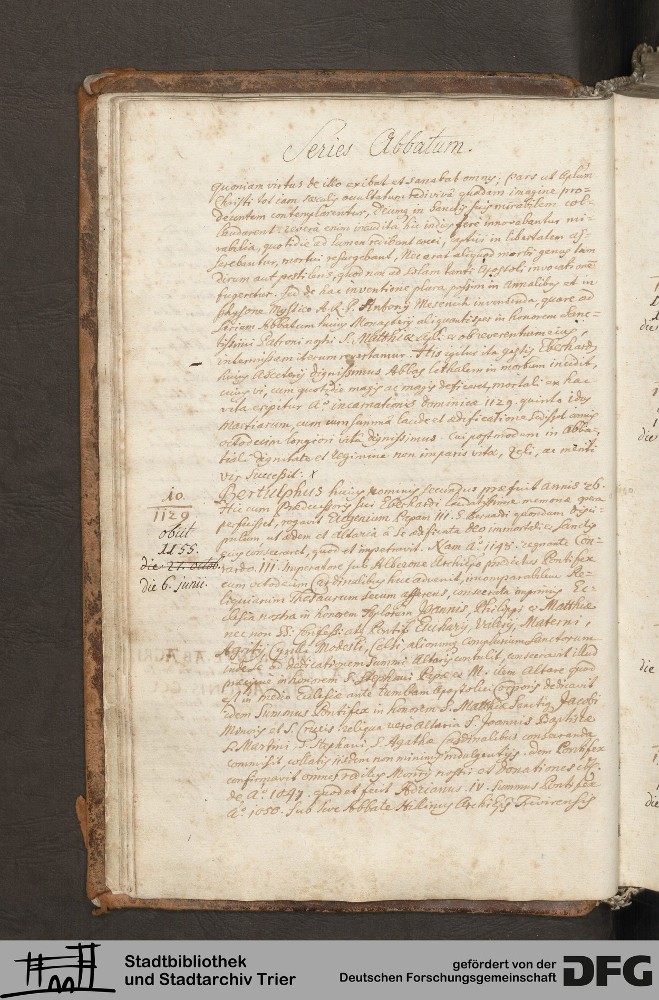 Series Abbatum.
quoniam virtus de illo exibat et sanabat omnes; pars ut Aplum
Christi tot iam sæculis occultatum redivivâ quadam imagine pro=
deuntem contemplarentur, Deumq in Sanctis suis mirabilem col=
laudarent: reverà enim inaudita hic indies ferè innovabantur mi=
rabilia, quotidie ad lumen redibant cæci, captivi in libertatem as=
serebantur, mortui resurgebant, Nec erat aliquod morbi genus tam
dirum aut pestilens, quod non ad solam tanti Apostoli invocationē
fugeretur. Sed de hac inventione plura passim in Annalibus et in
physone Mystico A.R.P. Antonij Mesenich invenienda, quare ad
Seriem Abbatum huius Monasterij aliquantisper in honorem Sanc=
tissimi Patroni nostri S. Matthiæ Apli, et ob reverentiam eius,
intermissam iterum revertamur. His igitur ita gestis Eberhardus
huius Asceterij dignissimus Abbas lethalem in morbum incidit,
cuius vi, cum quotidie magis ac magis deficeret, mortali ex hac
vita eripitur Aº incarnationis dominicæ 1129. quinto idus
Martiarum, cum cum summâ laude et ædificatione sedisset annis
octodecim longiori vitâ dignissimus. Cui postmodum in Abba=
tiali dignitate et regimine non imparis vitæ, zeli, ac meriti
vir successit: x
10
1129
obiit
1155.
die 27. octob.
die 6. junii.
Bertulphus huius nominis secundus præfuit annis 26.
Hic cum Prædecessoris sui Eberhardi laudatissimæ memoriæ opera
perfecisset, rogavit Eugenium Papam III. S. Bernardi quondam disci=
pulum ut ædem et altaria à se ædificata deo immortali et Sanctis
eius consecraret, quod et impetravit. Nam Aº 1148. regnante Con=
rardo III. Imperatore sub Alberone Archiepo prædictus Pontifex
cum octodecim Cardinalibus huc advenit, incomparabilem Re=
liquiarum Thesaurum secum afferens, consecrata inprimis Ec=
clesia nostra in honorem Aplorum Joannis, Philippi et Matthiæ
nec non SS. Confess: atq Pontif: Eucharij, Valerij, Materni,
Agrity, Cyrilli, Modesti, Celsi, aliorumq complurium Sanctorum
inde se ad dedicationem summi Altaris contulit, consecravit illud
præcipuè in honorem S. Stephani Papæ et M. item Altare quod
est in medio Ecclesiæ ante tumbam Apostolici corporis dedicavit
idem Summus Pontifex in honorem S. Matthiæ Sancti Jacobi
Minoris et S. Crucis reliqua verò altaria S. Joannis Baptistæ
S. Martini, S. Stephani, S. Agathæ Cardinalibus consecranda
commisit, collatis iisdem non minimis indulgentiis. idem Pontifex
confirmavit omnes reditus Monrij nostri et Donationes eiusd:
de Aº 1097. quod et fecit Adrianus IV. Summus Pontifex
Aº 1050. sub hoc Abbate Hillinus Archiepis Trevirensis
die
die
die
die
Stadtbibliothek
und Stadtarchiv Trier
gefördert von der
Deutschen Forschungsgemeinschaft
DFG